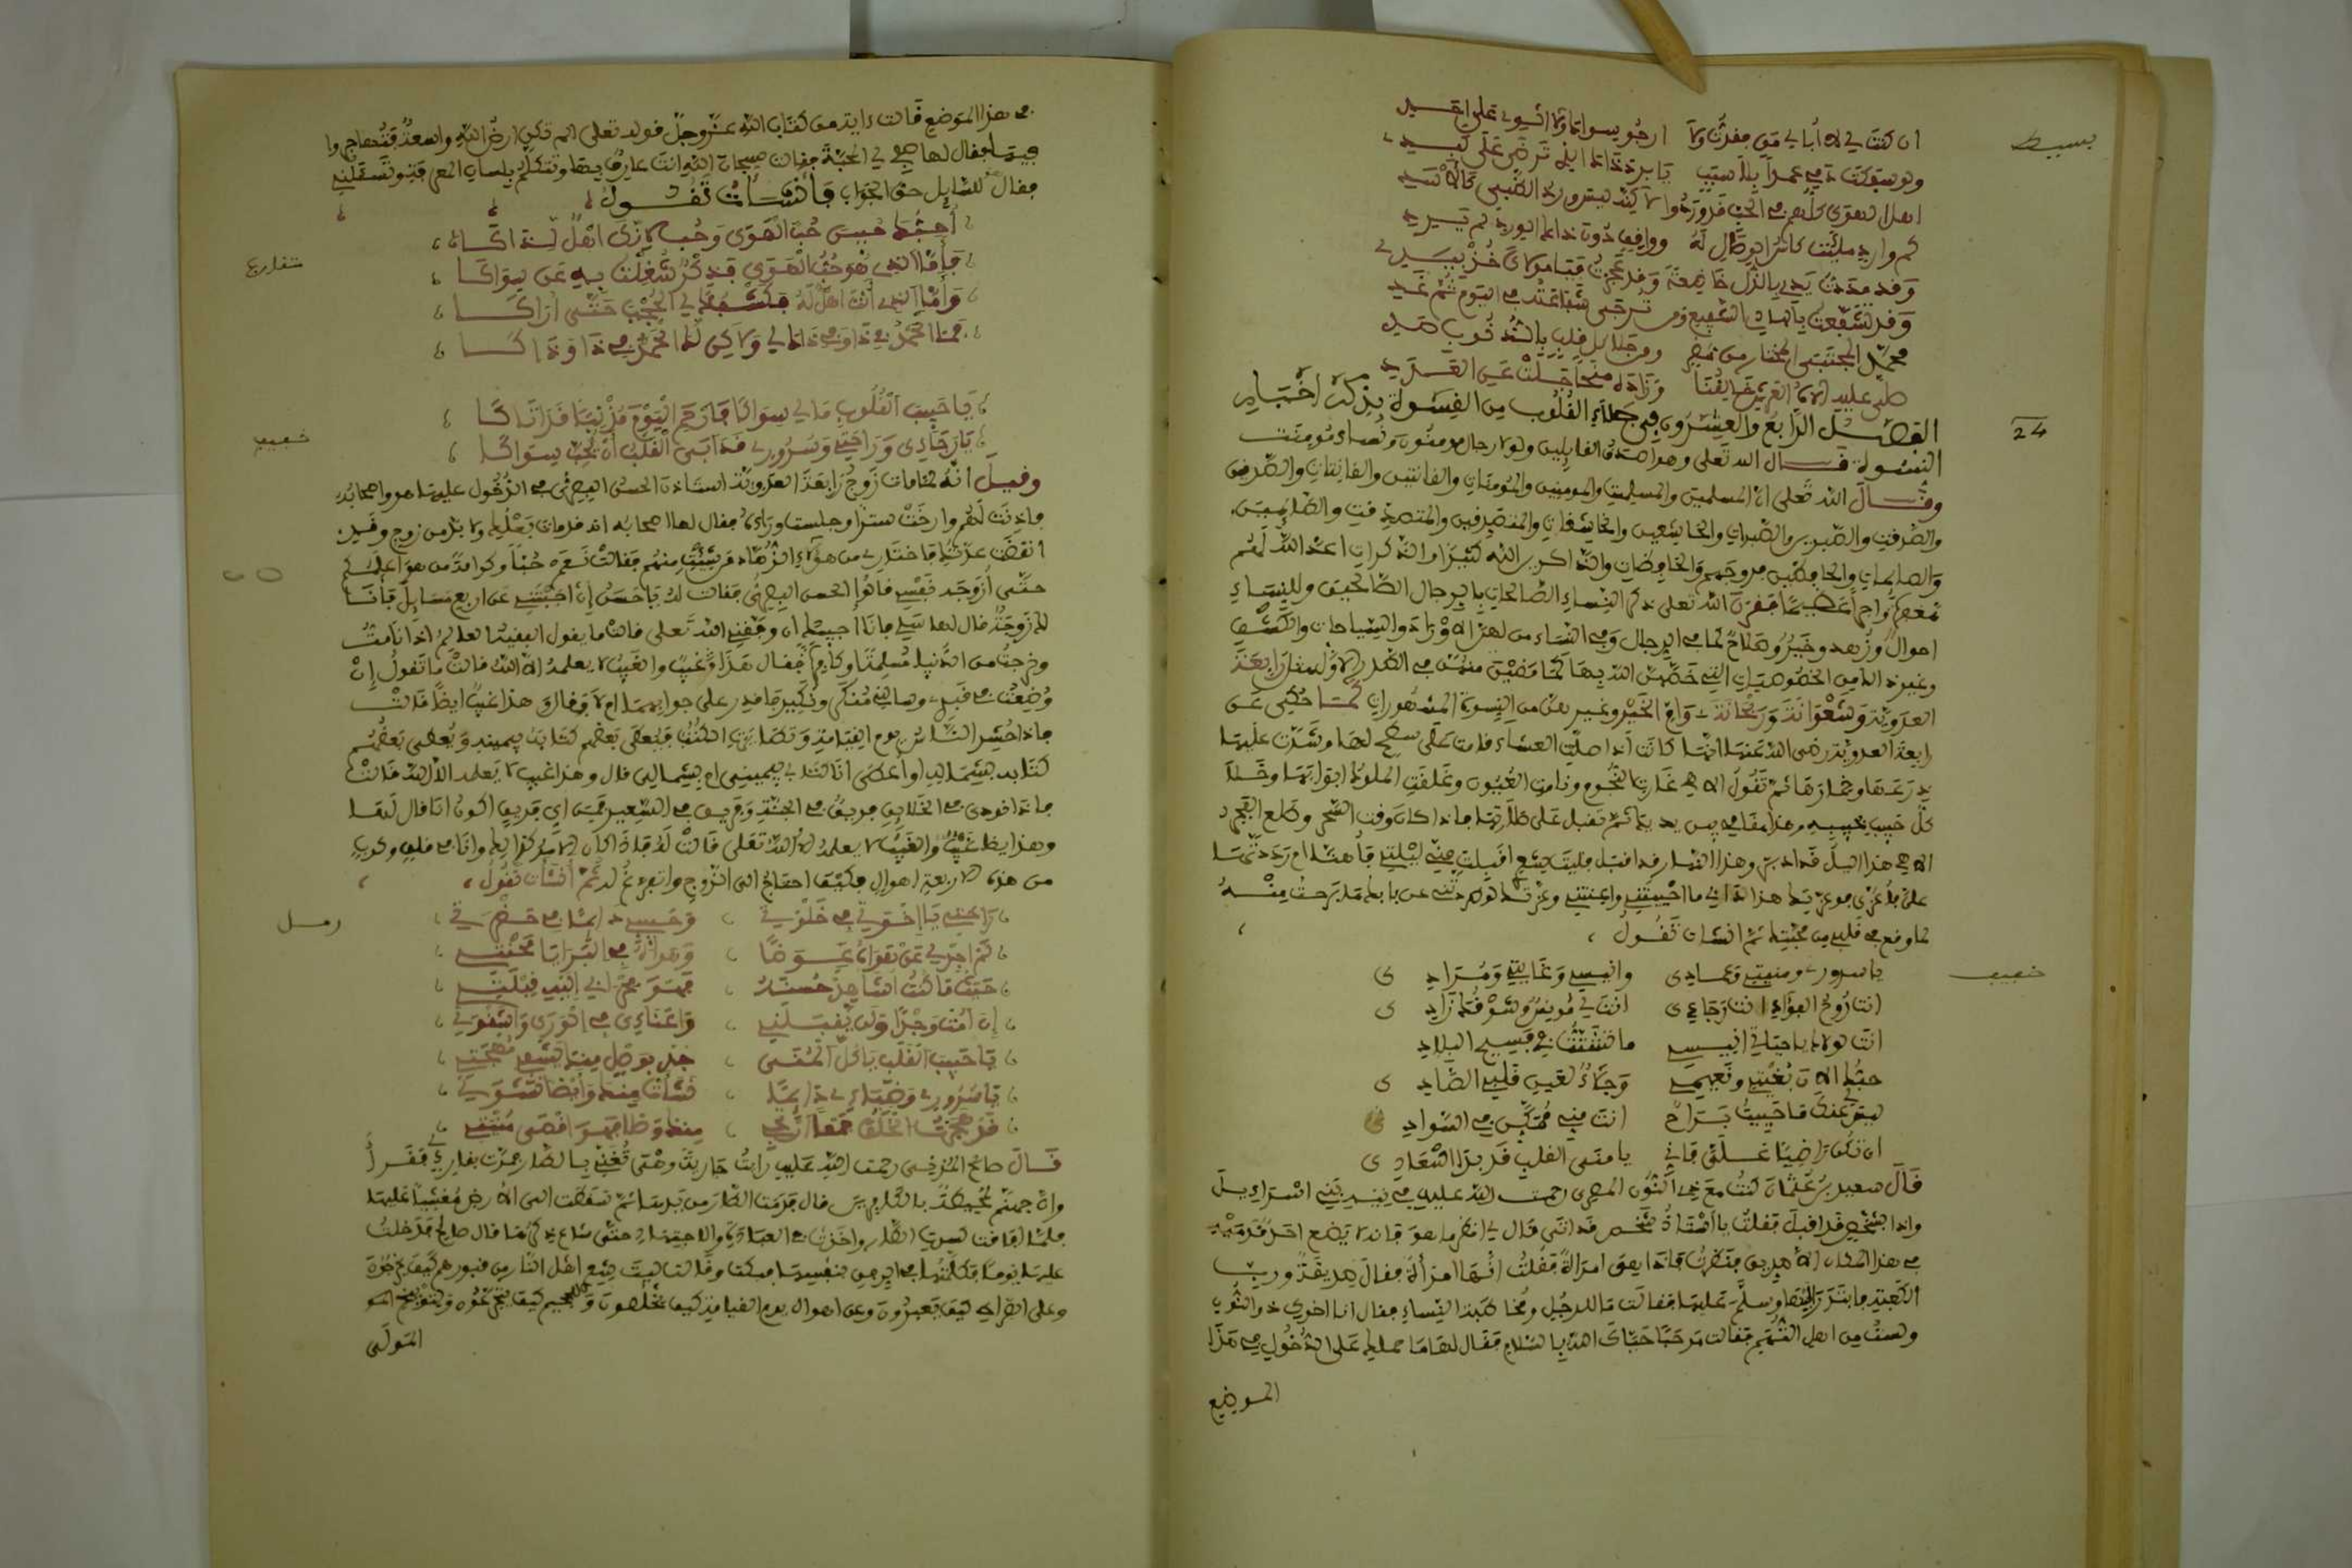 بسيط
ان كنت لي لا أبالي من فقدت ولا ارجو سواك ولا اشوي على احد
يا برد ذاك الذي ترضى على كبدي
اهل الهوى كلهم في الحب قد وردوا
كم وارد
وقد مددت يدي بالذل خاضعة وقد عجزت فيا مولاي خذ بيدي
وقد تشفعت بالهادي الشفيع ومن ترجى شفاعته في اليوم ثم غد
محمد المجتبى المختار من مضر
صلى عليه الاه العرش خالقنا
24
الفصل الرابع والعشرون في جلاء القلوب من القسوة بذكر اختبار
النسوة قال الله تعلى وهو اصدق القايلين ولولا رجال مومنون ونساء مومنت
وقال الله تعلى ان المسلمين والمسلمت والمومنين والمومنات والقانتين والقانتات والصدقين
والصدقت والصبرين والصبرات والخاشعين والخاشعات والمتصدقين والمتصدقت والصايمين
والصايمات والحافظين فروجهم والحافظات والذاكرين الله كثيرا والذاكرات اعد الله لهم
مغفرة واجرا عظيما فقرن الله تعلى ذكر النساء الصالحات بالرجال الصالحين وللنساء
احوال وزهد وخير وصلاح كما في الرجال وفي النساء من لهن الاوراد والسياحات والكشف
وغير ذالك من الخصوصيات التي خصهن الله بها كما منهن في الصدر الاول مثل رابعة
العدوية وشعوانة وريحانة وام الخير وغيرهن من النسوة المشهورات كما حكى عن
رابعة العدوية رضى الله عنها انها كانت اذا صلت العشاء قامت على سطح لها وشدت عليها
درعها وخمارها ثم تقول الاهي غارت النجوم ونامت العيون وغلقت الملوك ابوابها وخلا
كل حبيب بحبيبه وهذا مقامي بين يديك ثم تقبل على صلاتها فاذا كان وقت السحر وطلع الفجر
الاهي هذا اليل قد ادبر وهذا النهار قد اقبل فليت شعري اقبلت مني ليلتي فاهنا ام رددتها
علي فاعزى فوعزتك هذا دابي ما احييتني واعنتني وعزتك لو طردتني عن بابك ما برحت منه
لما وقع في قلبي من محبتك ثم انشات تقول
خفيف
يا سروري ومنيتي وعمادي وانيسي وعدتي ومرادي
انت روح الفؤاد انت رجاءي انت لي مونس وشوقك زادي
انت لولاك يا حياتي انيسي ما تشتت في فسيح البلاد
حبك الان بغيتي ونعيمي وجلاء لعين قلبي الصادي
ليس لي عنك ما حييت براح انت مني ممكن في السواد
ان تكن راضيا علي فاني يا منى القلب قد بدا اسعادي
قال سعيد بن عثمان كنت مع ذي النون المصري رحمت الله عليه في تيه بني اسراءيل
واذا بشخص قد اقبل فقلت يا استاذ شخص قد اتى قال لي انظر ما هو فانه لا يضع احد قدميه
في هذا المكان الا صديق فنظرت فاذا هي امراة فقلت انها امراة فقال صديقة ورب
الكعبة فابتدر اليها وسلم عليها فقالت ما للرجل ومخاطبة النساء فقال انا اخوك ذو النون
ولست من اهل التهم فقالت مرحبا حياك الله بالسلام فقال لها ما حملك على الدخول في هذا
الموضع
في هذا الموضع قالت ءاية من كتاب الله عز وجل قوله تعلى الم تكن ارض الله واسعة فتهاجروا
فيها فقال لها صفي لي المحبة فقالت سبحان الله انت عارف بها وتتكلم بلسان المعرفة وتسئلني
فقال للسايل حق الجواب فانشات تقول
متقارب
أحبك حبين حب الهوى وحب لانك اهل لذاكا
فأما الذي هو حب الهوى فذكر شغلت به عن سواكا
وأما الذي أنت اهل له فكشفك لي الحجب حتى أراكا
فما الحمد في ذا وفي ذاك لي ولاكن لك الحمد في ذا وذاكا
خفيف
يا حبيب القلوب ما لي سواكا فارحم اليوم مذنبا قد اتاكا
يا رجاءي وراحتي وسروري قد ابى القلب أن يحب سواكا
وقيل أنه لما مات زوج رابعة العدوية استاذن الحسن البصري في الدخول عليها هو واصحابه
فاذنت لهم وارخت سترا وجلست وراءه فقال لها اصحابه انه قد مات بعلك ولا بد من زوج وقد
انقضت عدتك فاختاري من هؤلاء الزهاد من شئت منهم فقالت نعم حبا وكرامة من هو اعلمكم
حتى أزوجه نفسي قالوا الحسن البصري فقالت له يا حسن إن اجبتني عن اربع مسايل فأنا
لك زوجة قال لها سلي فانا اجيبك ان وفقني الله تعلى قالت ما يقول الفقيه العالم اذا انا مت
وخرجت من الدنيا مسلمة او كافرة فقال هذا غيب والغيب لا يعلمه الا الله قالت ما تقول إن
وضعت في قبري وسالني منكر ونكير فاقدر على جوابهما ام لا فقال وهذا غيب ايضا قالت
فاذا حشر الناس يوم القيامة وتطايرت الكتب فيعطى بعضهم كتابه بيمينه ويعطى بعضهم
كتابه بشماله اواعطى انا كتابي بيميني ام بشمالي قال وهذا غيب لا يعلمه الا الله قالت
فاذا نودي في الخلايق فريق في الجنة وفريق في السعير فمن اي فريق اكون انا قال لها
وهذا ايضا غيب والغيب لا يعلمه الا الله تعلى قالت له فاذا كان الامر كذالك وانا في قلق وكرب
من هذه الاربعة اهوال فكيف احتاج الى الزوج واتفرغ له ثم انشات تقول
رمل
راحتي يا اخوتي في خلوتي وحبيبي دايما في حضرتي
لم اجد لي عن هواه عوضا وهواه في البرايا محنتي
حيثما كنت اشاهد حسنه فهو محرابي اليه قبلتي
إن امت وجدا ولم يقبلني واعناءي في الورى واشقوتي
يا حبيب القلب يا كل المنى جد بوصل منك يشفي مهجتي
يا سروري وحياتي دايما نشات منك وايضا نشوتي
قد هجرت الخلق جمعا ارتجي منك وصلا فهو اقصى منيتي
قال صالح المري رحمت الله عليه رايت جارية وهي تغني بالطار فمرت بقارئ فقرأ
وان جهنم لمحيطة بالكافرين قال فرمت الطار من يدها ثم سقطت الى الارض مغشيا عليها
فلما افاقت كسرت الطار واخذت في العبادة والاجتهاد حتى شاع ذكرها قال صالح فدخلت
عليها يوما فكلمتها في الرفق بنفسها فبكت وقالت ليت شعري اهل النار من قبورهم كيف يخرجون
وعلى الصراط كيف يعبرون ومن اهوال يوم القيامة كيف يخلصون وللحميم كيف يتجرعون ولتوبيخ
المولى